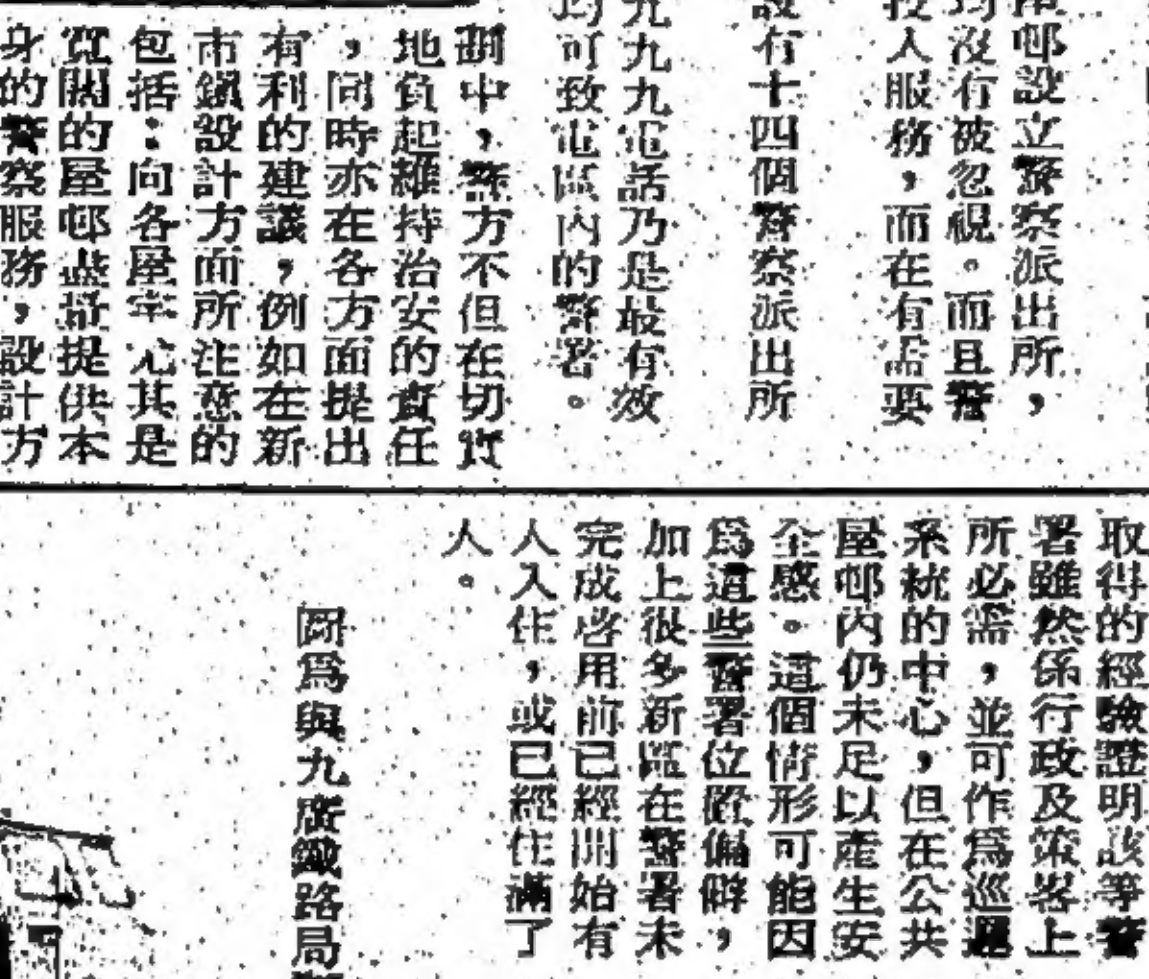 南邨設立警察派出所，
均沒有被忽視。而且警
投入服務，而在有需要
設有十四個警察派出所
九九九電話乃是最有效
均可致電區內的警署。
劃中，警方不但在切實
地負起維持治安的責任
，同時亦在各方面提出
有利的建議，例如在新
市鎮設計方面所注意的
包括：向各屋宇尤其是
寬闊的屋邨盡量提供本
身的警察服務，設計方
取得的經驗證明該等警
署雖然係行政及策畧上
所必需，並可作爲巡邏
系統的中心，但在公共
屋邨內仍未足以產生安
全感。這個情形可能因
爲這些警署位置偏僻，
加上很多新區在警署未
完成啓用前已經開始有
人入住，或已經住滿了
人。
圖爲與九廣鐵路局